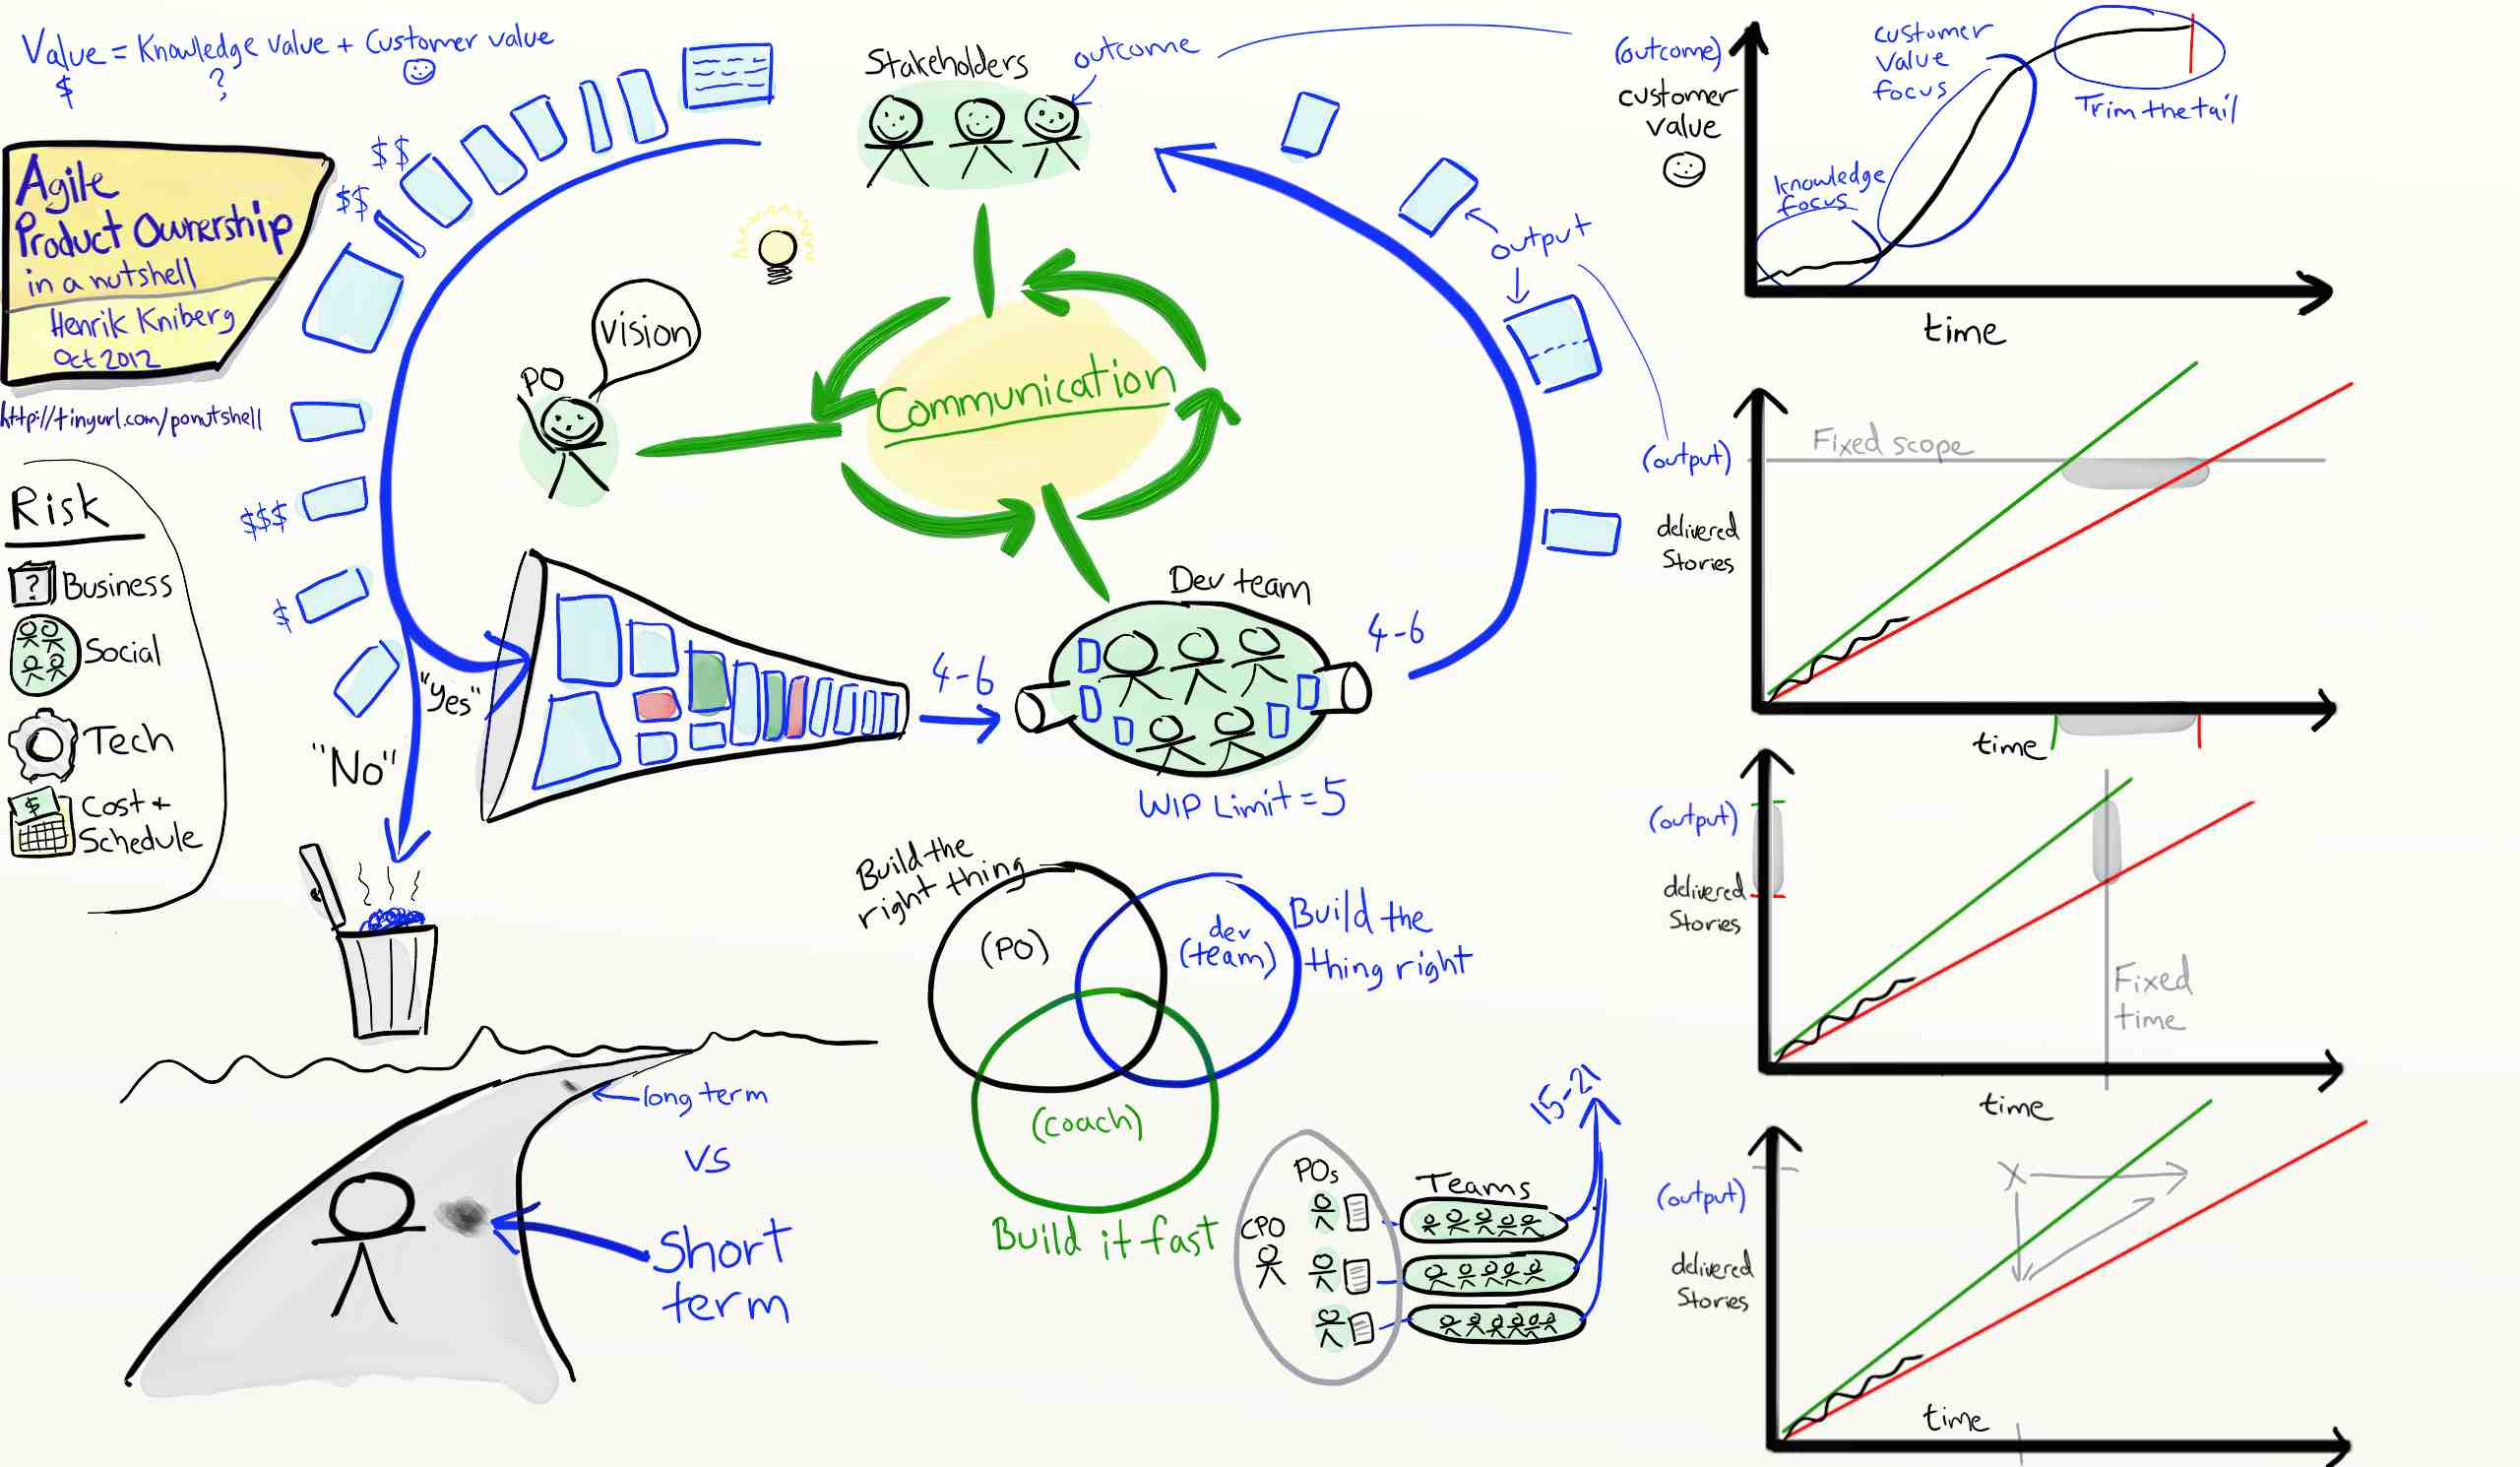 Value = Knowledge value + Customer value
$ ?
Agile
Product Ownership
in a nutshell
Henrik Kniberg
Oct 2012
http://tinyurl.com/ponutshell
Risk
? Business
Social
Tech
$ Cost +
Schedule
$$
$$
$$$
$
"Yes"
"No"
Stakeholders
outcome
PO
Vision
Communication
output
Dev team
4-6
4-6
WIP Limit = 5
Build the
right thing
(PO)
dev
(team)
Build the
thing right
(coach)
Build it fast
long term
vs
Short
term
CPO
POs
Teams
15-21
(outcome)
customer
value
knowledge
focus
customer
value
focus
Trim the tail
time
(output)
delivered
Stories
Fixed scope
time
(output)
delivered
Stories
Fixed
time
time
(output)
delivered
Stories
X
time